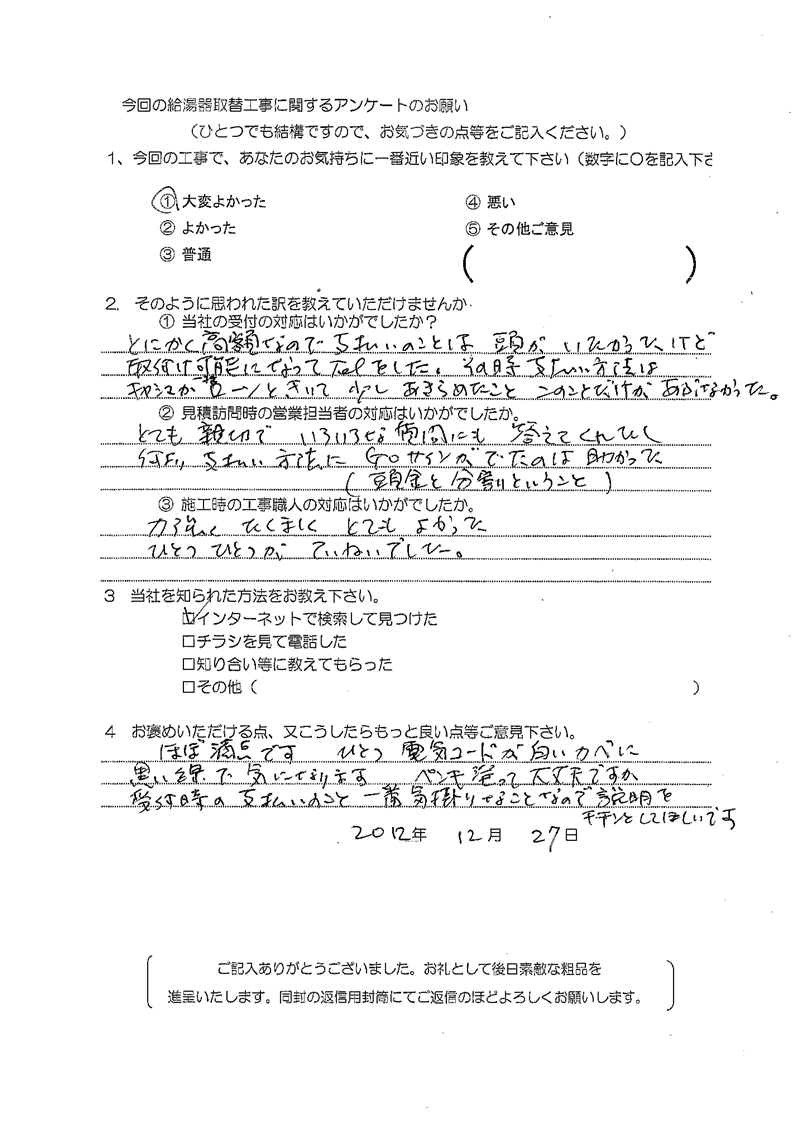 今回の給湯器取替工事に関するアンケートのお願い
（ひとつでも結構ですので、お気づきの点等をご記入ください。）
1、今回の工事で、あなたのお気持ちに一番近い印象を教えて下さい（数字に〇を記入下さ
① 大変よかった ④ 悪い
② よかった ⑤ その他ご意見
③ 普通 （ ）
2．そのように思われた訳を教えていただけませんか
① 当社の受付の対応はいかがでしたか？
とにかく高額なので支払いのことは 頭が いたかったけど
取付け可能になってTelをした。その時支払い方法は
ローンときいて 少し あきらめたこと このことだけが あぶなかった。
② 見積訪問時の営業担当者の対応はいかがでしたか。
とても 親切で いろいろな質問にも 答えてくれ
支払い 方法に GOサインがでたのは 助かった
（頭金と分割りということ）
③ 施工時の工事職人の対応はいかがでしたか。
力強く とても よかった
ひとつ ひとつが ていねいでした。
3 当社を知られた方法をお教え下さい。
☑インターネットで検索して見つけた
□チラシを見て電話した
□知り合い等に教えてもらった
□その他（ ）
4 お褒めいただける点、又こうしたらもっと良い点等ご意見下さい。
ほぼ満点です ひとつ 電気コードが白いカベに
黒い線で 気になります ペンキ塗って大丈夫ですか
受付時の支払いのこと 一番気掛りなことなので説明を
キチンとしてほしいです
2012年 12月 27日
ご記入ありがとうございました。お礼として後日素敵な粗品を
進呈いたします。同封の返信用封筒にてご返信のほどよろしくお願いします。